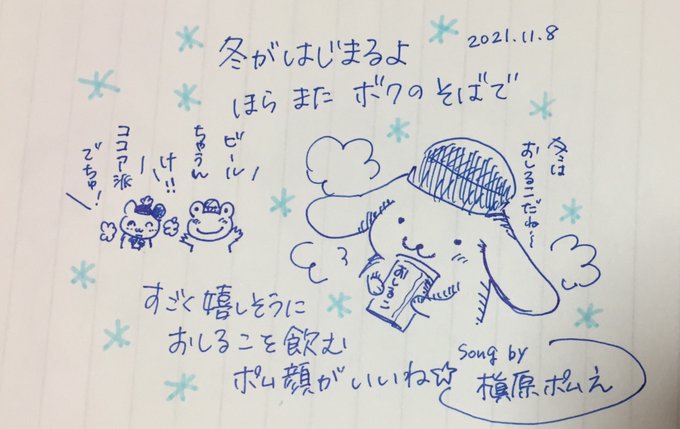 2021.11.8
冬がはじまるよ
ほら また ボクの そばで
ビール
ちゃうん
け!!
ココア派
でちゅ!
冬は
おしるこだね〜
おしるこ
すごく嬉しそうに
おしるこを飲む
ポム顔がいいね☆
Song by
槇原ポムえ